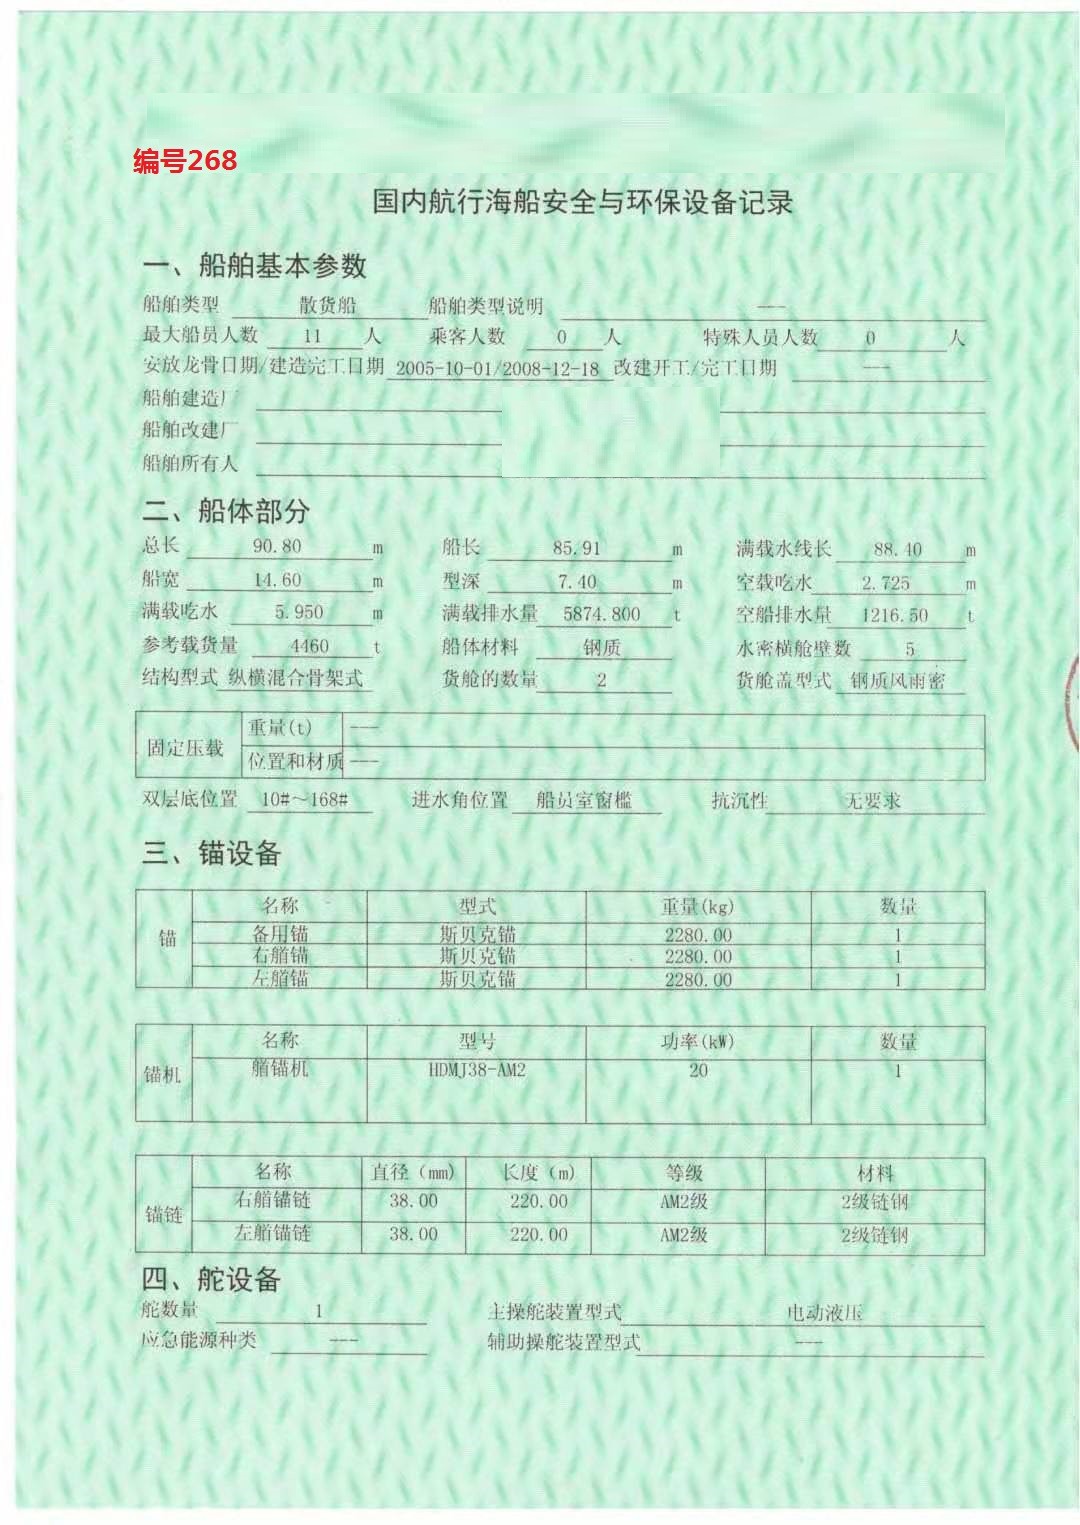 编号268
国内航行海船安全与环保设备记录
一、船舶基本参数
船舶类型 散货船 船舶类型说明 ---
最大船员人数 11 人 乘客人数 0 人 特殊人员人数 0 人
安放龙骨日期/建造完工日期 2005-10-01/2008-12-18 改建开工/完工日期 ---
船舶建造厂
船舶改建厂
船舶所有人
二、船体部分
总长 90.80 m 船长 85.91 m 满载水线长 88.40 m
船宽 14.60 m 型深 7.40 m 空载吃水 2.725 m
满载吃水 5.950 m 满载排水量 5874.800 t 空船排水量 1216.50 t
参考载货量 4460 t 船体材料 钢质 水密横舱壁数 5
结构型式 纵横混合骨架式 货舱的数量 2 货舱盖型式 钢质风雨密
固定压载 重量(t) ---
位置和材质 ---
双层底位置 10#~168# 进水角位置 船员室窗槛 抗沉性 无要求
三、锚设备
锚 名称 型式 重量(kg) 数量
备用锚 斯贝克锚 2280.00 1
右艏锚 斯贝克锚 2280.00 1
左艏锚 斯贝克锚 2280.00 1
锚机 名称 型号 功率(kW) 数量
艏锚机 HDMJ38-AM2 20 1
锚链 名称 直径(mm) 长度(m) 等级 材料
右艏锚链 38.00 220.00 AM2级 2级链钢
左艏锚链 38.00 220.00 AM2级 2级链钢
四、舵设备
舵数量 1 主操舵装置型式 电动液压
应急能源种类 --- 辅助操舵装置型式 ---